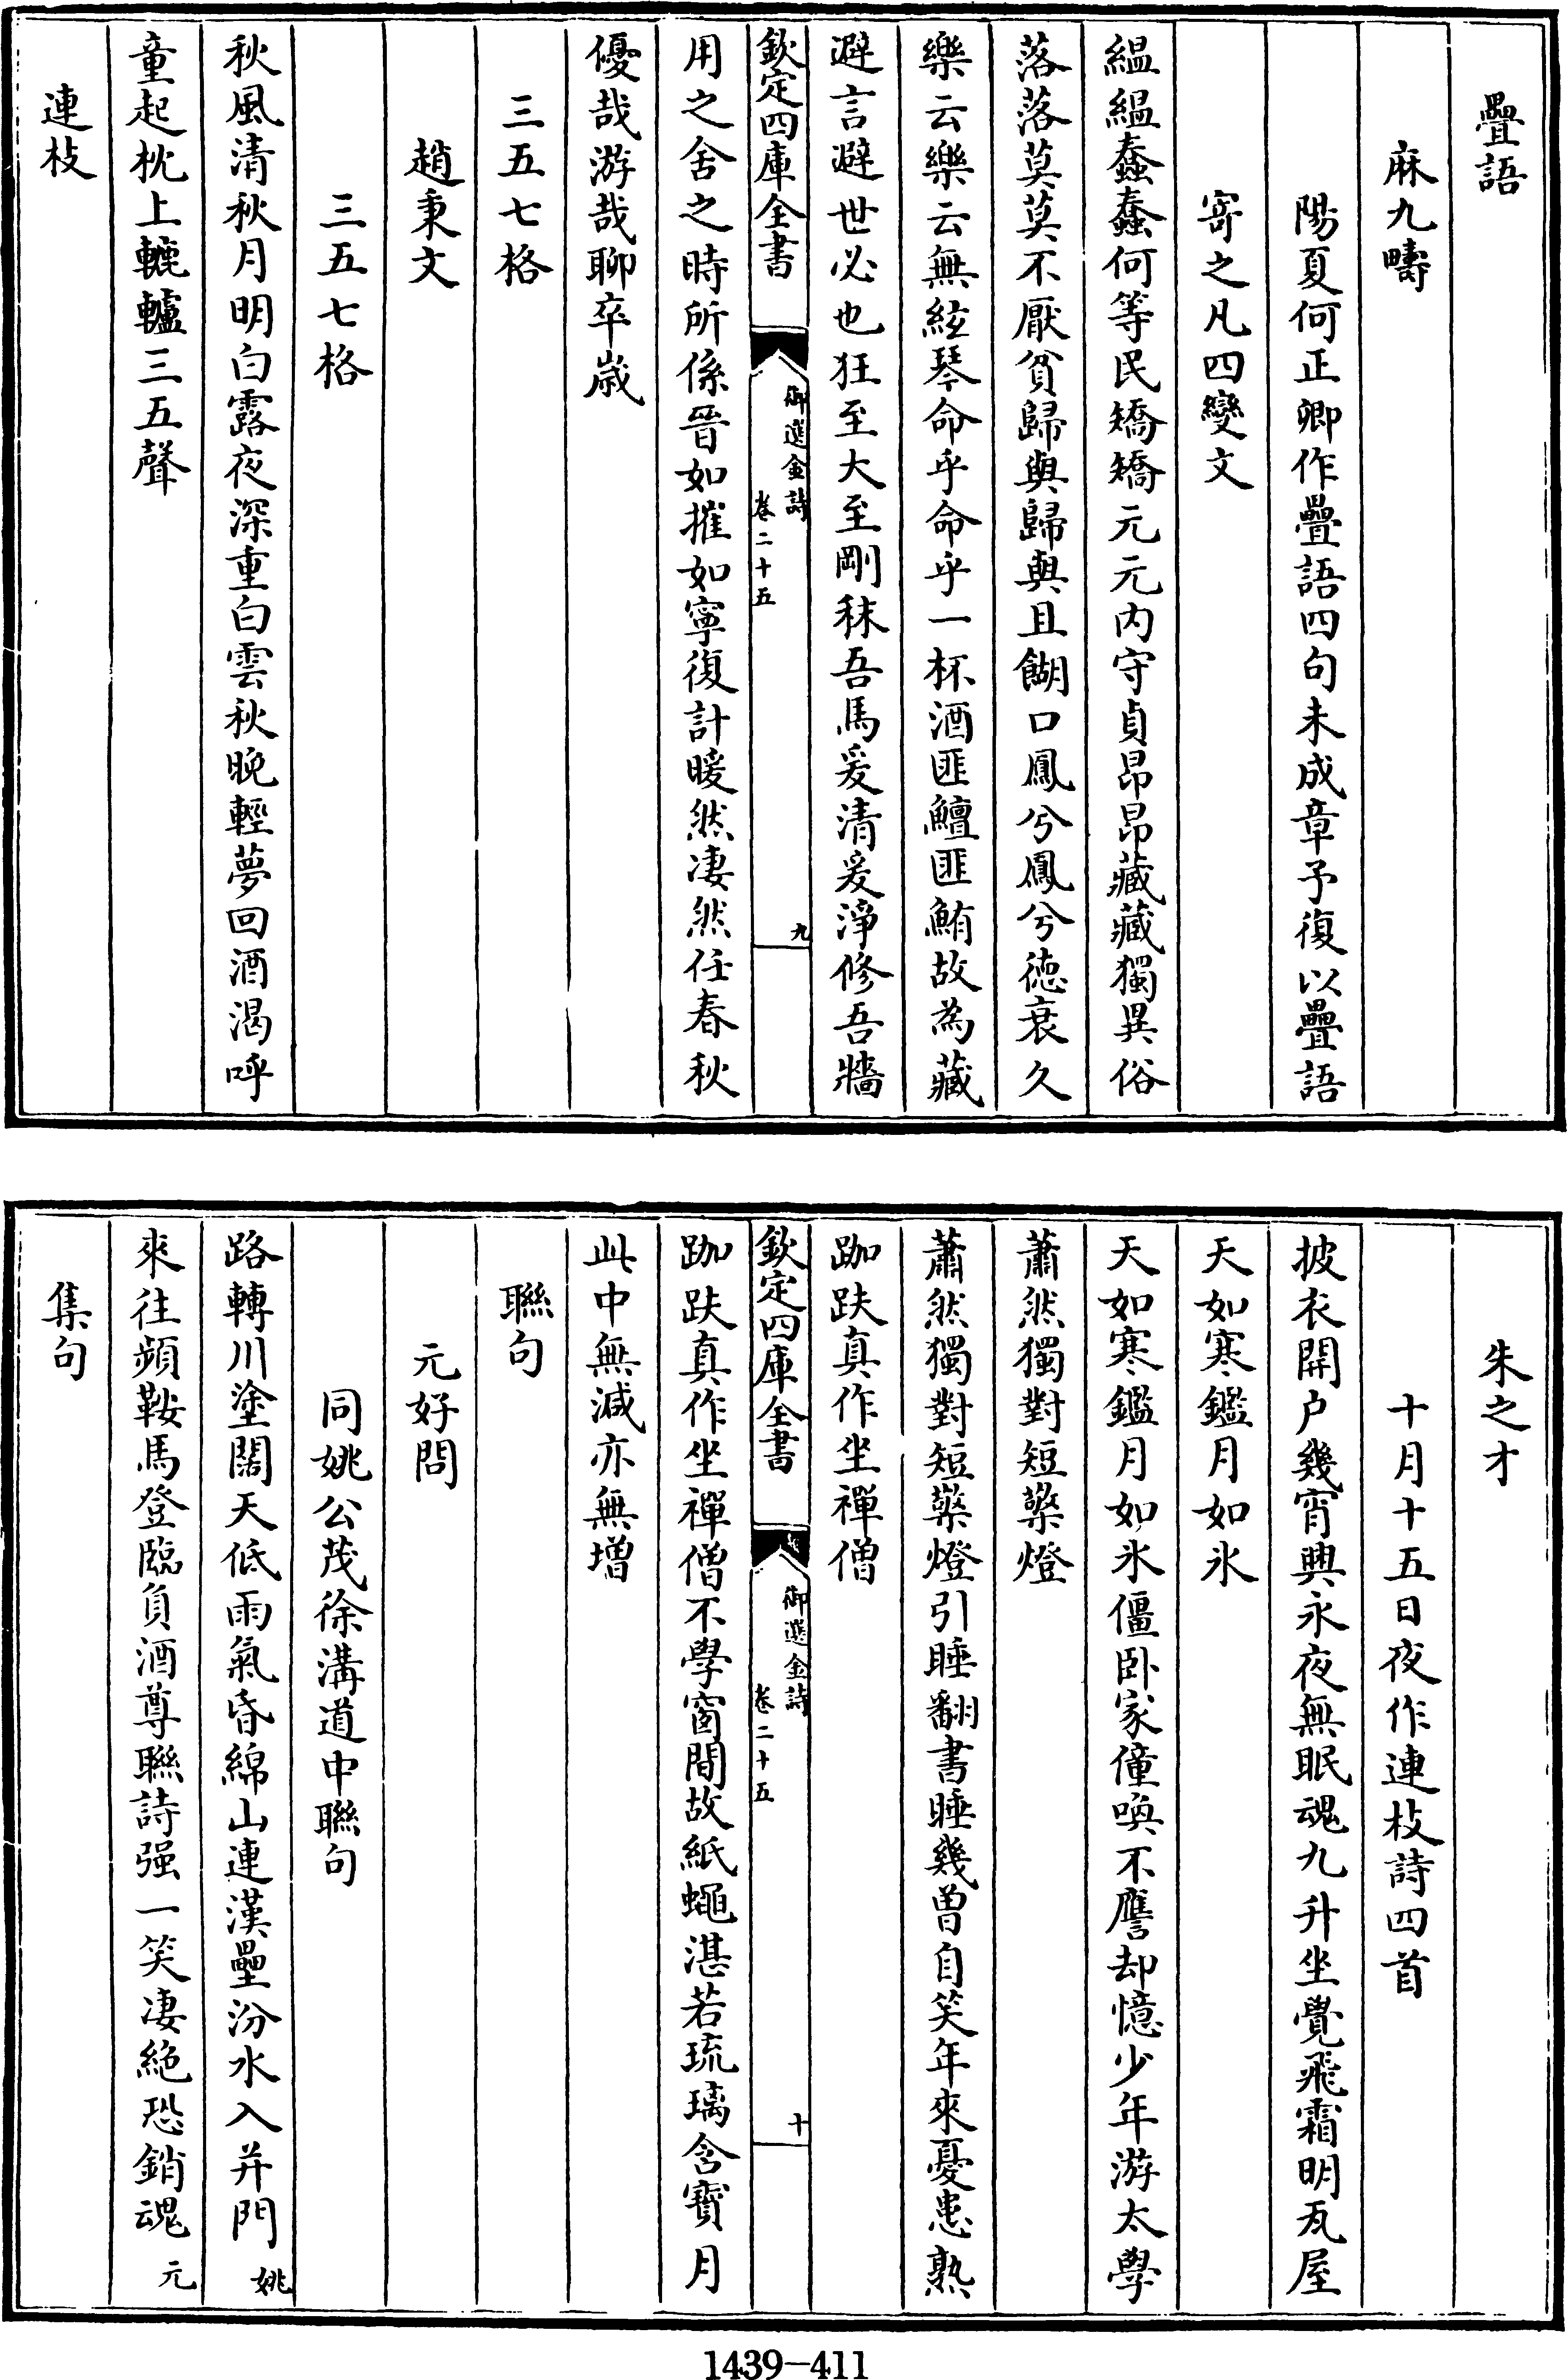 疊語
麻九疇
陽夏何正卿作疊語四句未成章予復以疊語
寄之凡四變文
緼緼蠢蠢何等民矯矯元元内守貞昂昂藏藏獨異俗
落落莫莫不厭貧歸與歸與且餬口鳳兮鳳兮徳衰久
樂云樂云無絃琴命乎命乎一杯酒匪鱣匪鮪故為藏
避言避世必也狂至大至剛秣吾馬爰清爰淨修吾牆
欽定四庫全書
御選金詩
卷二十五
九
用之舍之時所係晉如摧如寧復計暖然凄然任春秋
優哉游哉聊卒嵗
三五七格
趙秉文
三五七格
秋風清秋月明白露夜深重白雲秋晚輕夢回酒渴呼
童起枕上轆轤三五聲
連枝
朱之才
十月十五日夜作連枝詩四首
披衣開户幾宵興永夜無眠魂九升坐覺飛霜明瓦屋
天如寒鑑月如氷
天如寒鑑月如氷僵卧家僮喚不譍却憶少年游太學
蕭然獨對短檠燈
蕭然獨對短檠燈引睡翻書睡幾曾自笑年來憂患熟
跏趺真作坐禪僧
欽定四庫全書
御選金詩
卷二十五
十
跏趺真作坐禪僧不學窗間故紙蠅湛若琉璃含寶月
此中無減亦無增
聯句
元好問
同姚公茂徐溝道中聯句
路轉川塗闊天低雨氣昏綿山連漢壘汾水入并門姚
來往頻鞍馬登臨負酒尊聯詩强一笑凄絶恐銷魂元
集句
1439-411